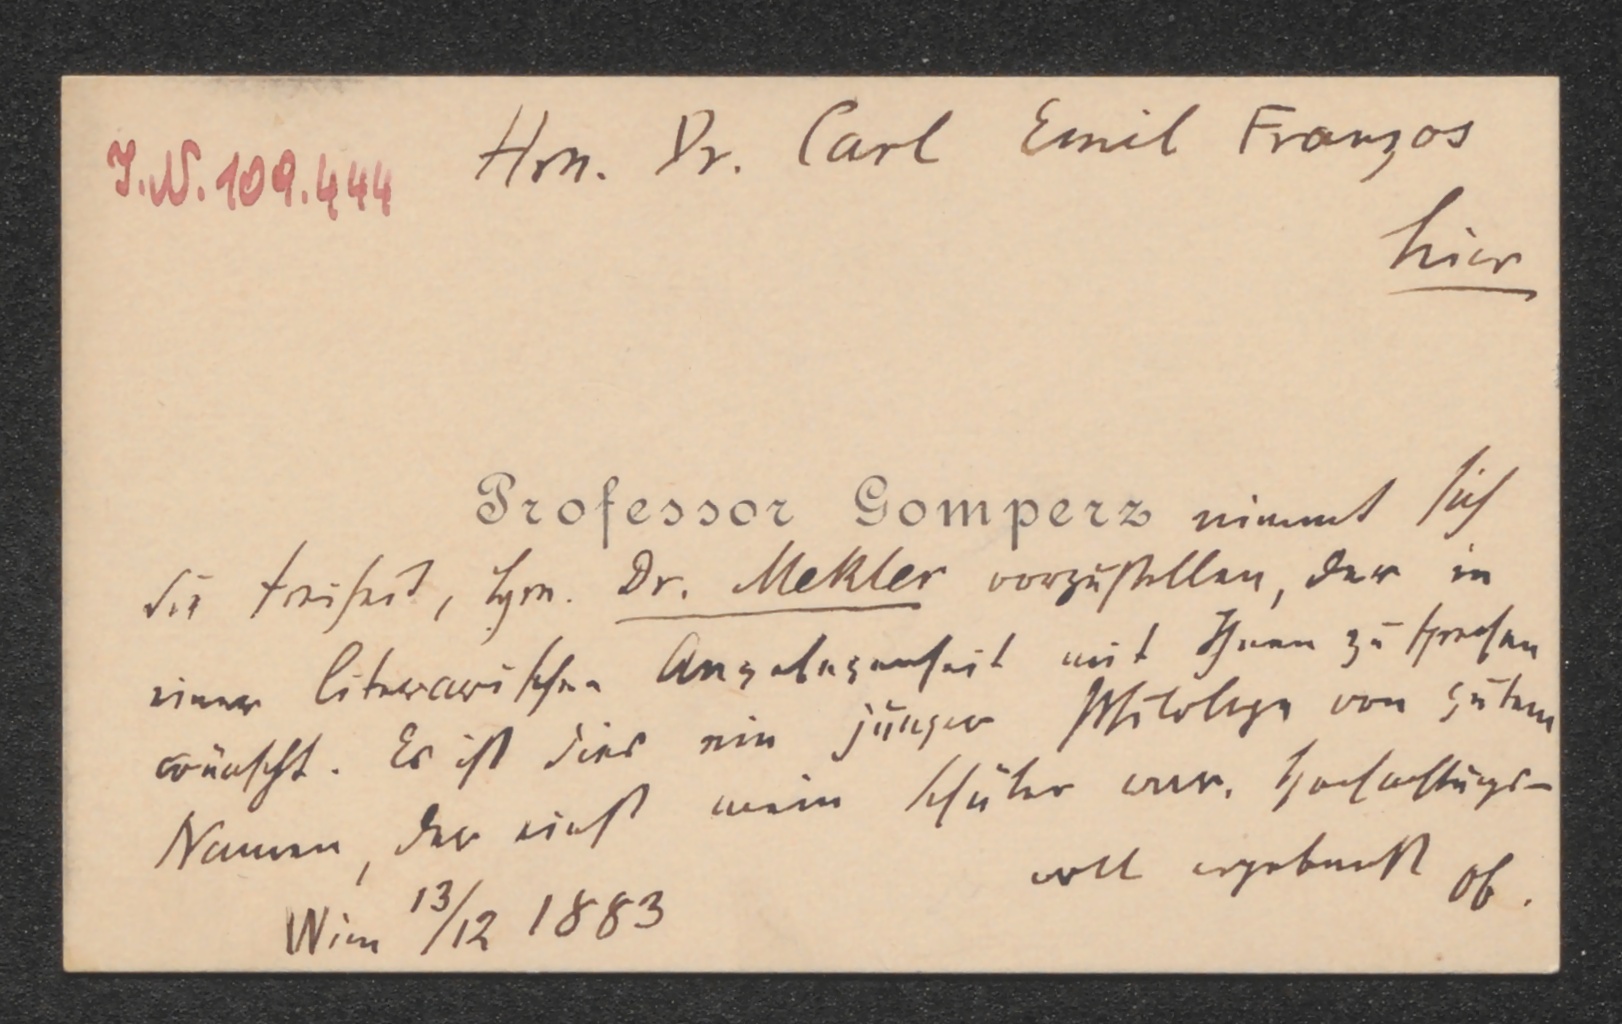 I.N. 109.444
Hrn. Dr. Carl Emil Franzos
hier
Professor Gomperz nimmt sich
die Freiheit, Hrn. Dr. Mekler vorzustellen, der in
einer literarischen Angelegenheit mit Ihnen zu sprechen
wünscht. Es ist dies ein junger Philologe von gutem
Namen, der einst mein Schüler war. Hochachtungs-
voll ergebenst
Wien 13/12 1883